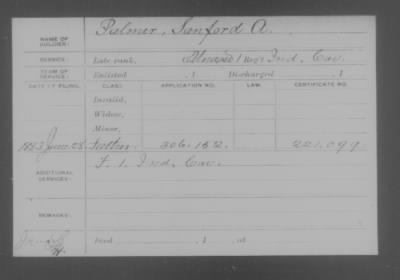 NAME OF SOLDIER: Palmer, Sanford A.
SERVICE: Late rank, 1 Reg't Ind. Cav.
TERM OF SERVICE: Enlisted , 1 Discharged , 1
DATE OF FILING. CLASS. APPLICATION NO. LAW. CERTIFICATE NO.
Invalid,
Widow,
Minor,
1883 June 28. Father 306.152. 221.099
ADDITIONAL SERVICES: F. 1. Ind. Cav.
REMARKS:
Died , 1 , at